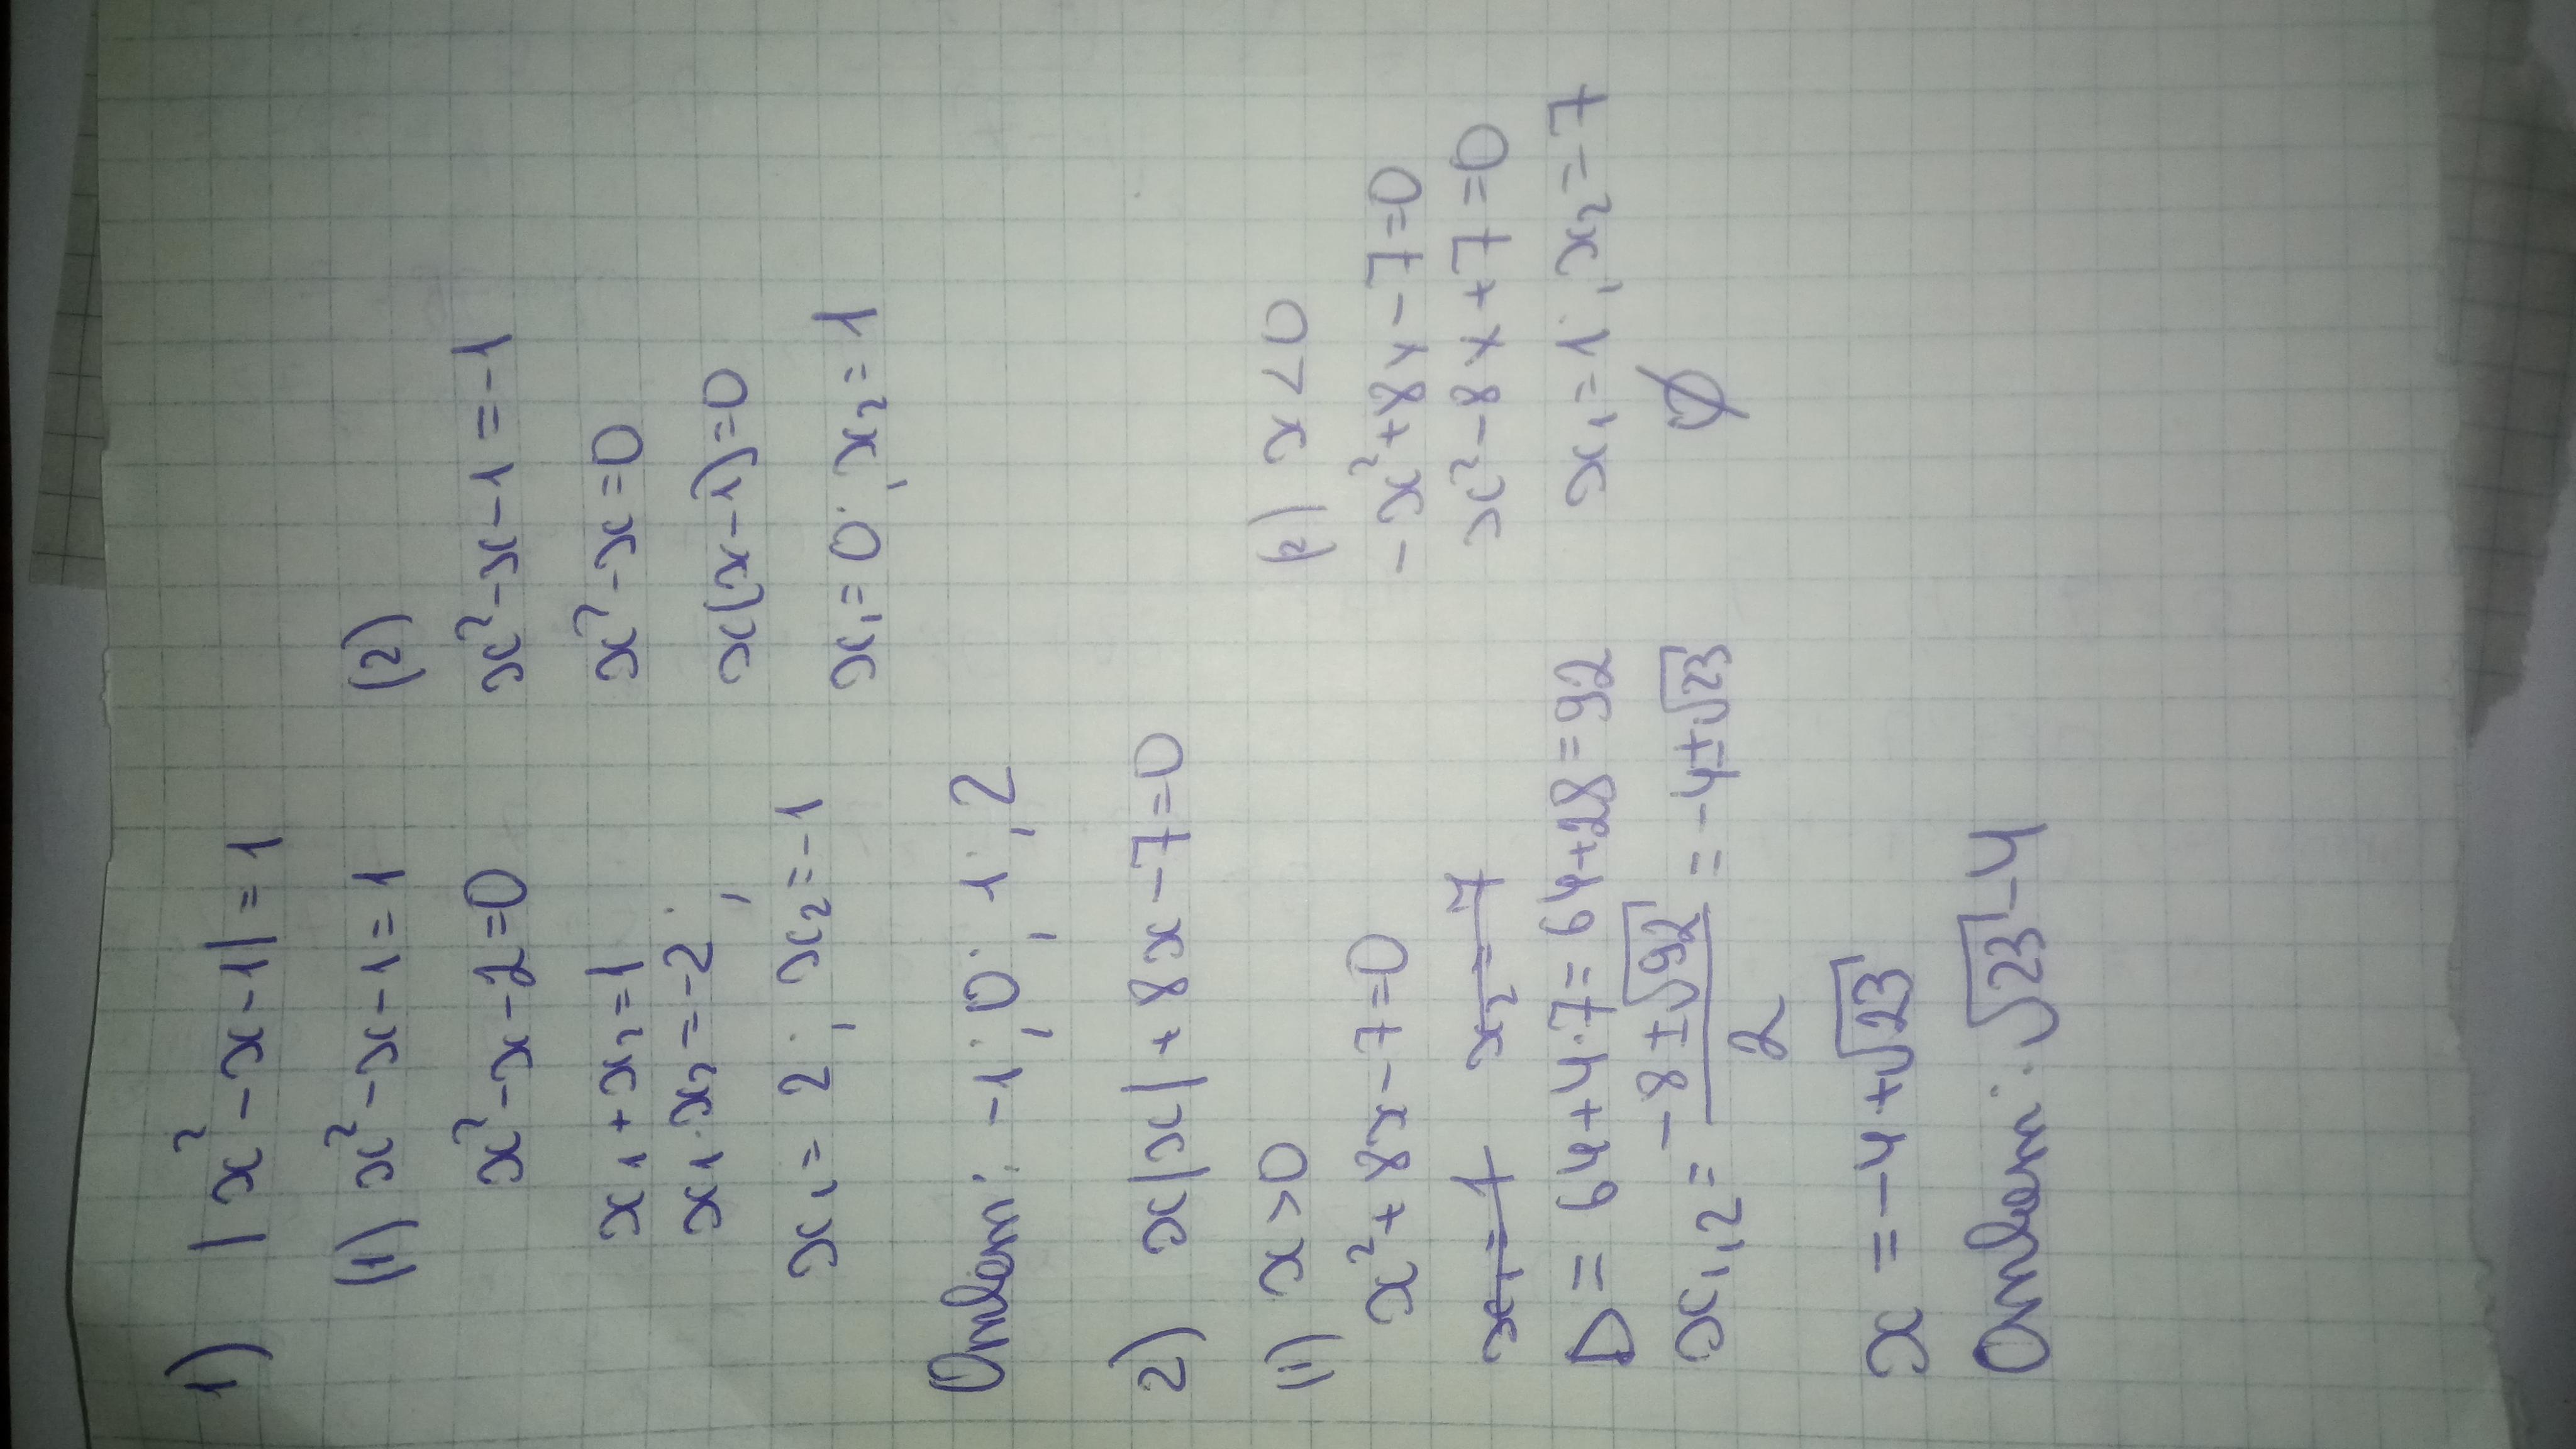 1) |x²-x-1|=1
(1) x²-x-1=1
x²-x-2=0
x₁+x₂=1
x₁·x₂=-2;
x₁=2; x₂=-1
(2)
x²-x-1=-1
x²-x=0
x(x-1)=0
x₁=0; x₂=1
Ответ: -1; 0; 1; 2
2) x|x|+8x-7=0
(1) x>0
x²+8x-7=0
x₁=1 x₂=7
D=64+4·7=64+28=92
x₁,₂=(-8±√92)/2=-4±√23
x=-4+√23
(2) x<0
-x²+8x-7=0
x²-8x+7=0
x₁=1; x₂=7
∅
Ответ: √23-4